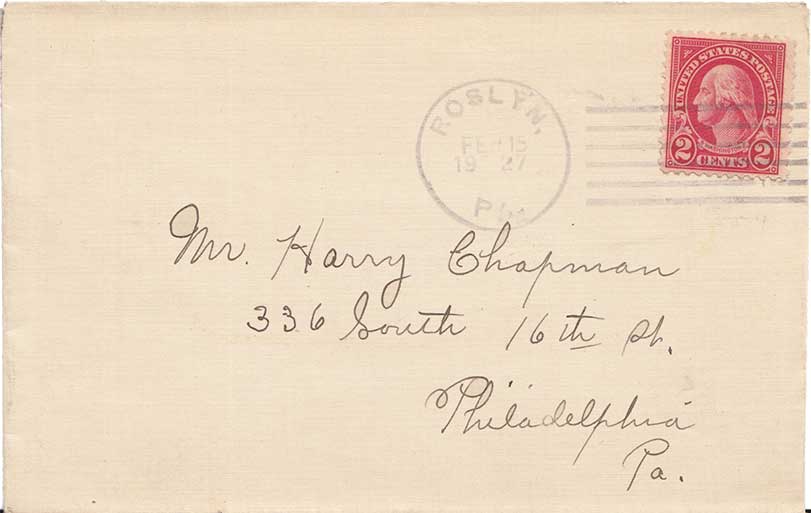 UNITED STATES POSTAGE
2 CENTS 2
ROSLYN,
FEB 15
1927
PA.
Mr. Harry Chapman
336 South 16th St.
Philadelphia
Pa.